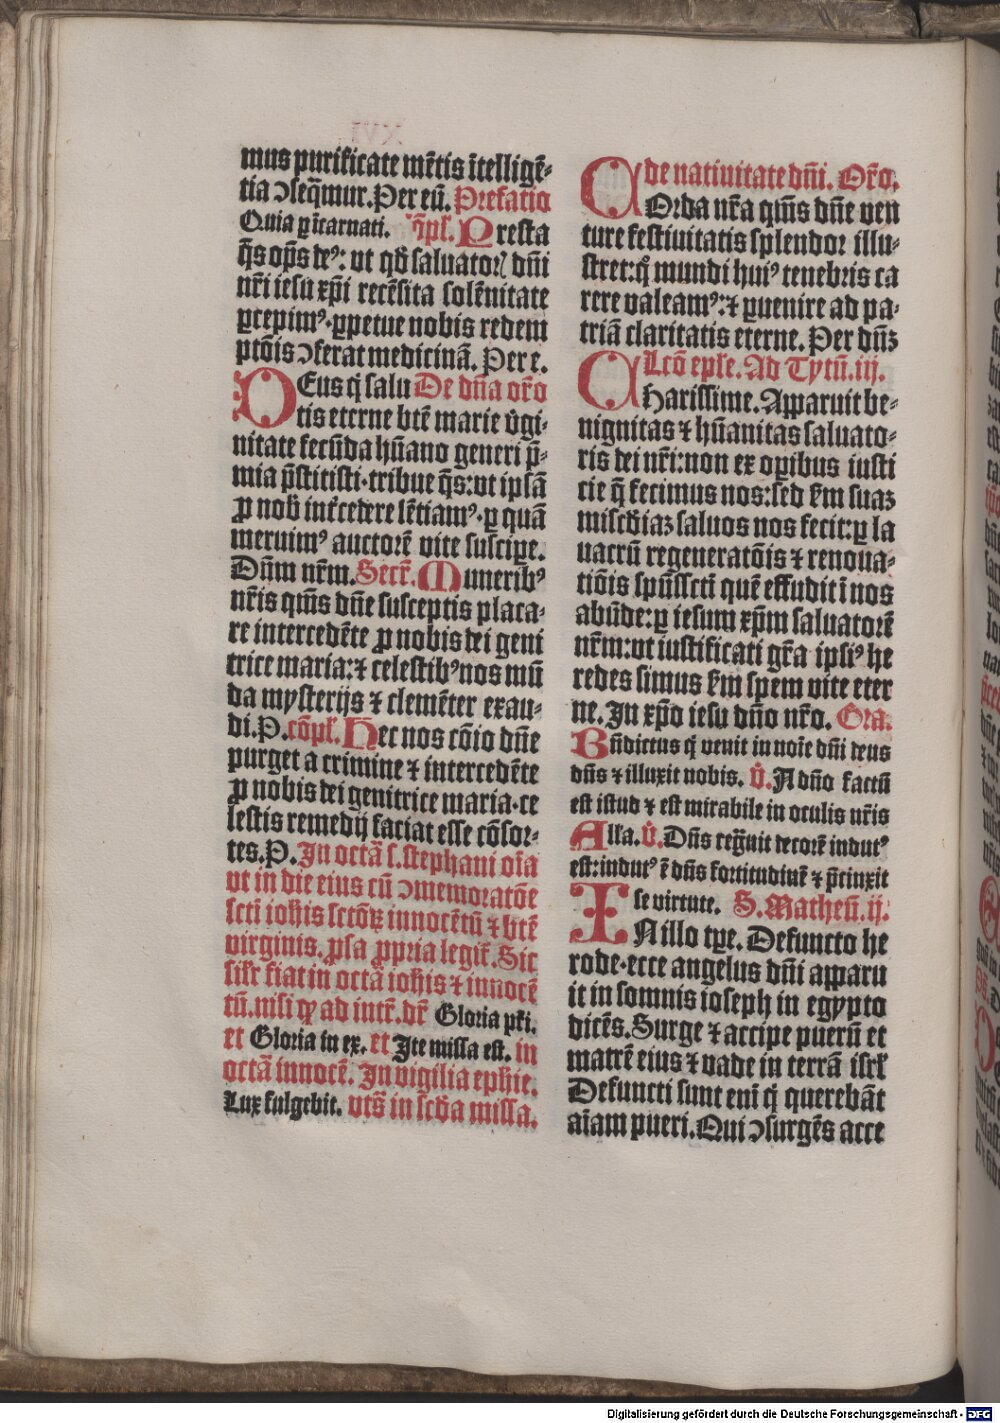 mus purificate mētis ītelligē-
tia ꝯseq̄mur. Per eū. Prefatio
Quia ꝑ īcarnati. 9̄pl'. Presta
q̄s op̄s deꝰ: vt qd̄ saluatorꝭ dn̄i
nr̄i iesu xp̄i recēsita solēnitate
ꝑcepimꝰ. ꝑpetue nobis redem
ptōis ꝯferat medicinā. Per e.
DEus q̄ salu De dn̄a or̄o
tis eterne btē marie v̄gi-
nitate fecūda hūano generi p̄-
mia p̄stitisti. tribue q̄s: vt ipsā
ꝓ nob̄ int̄cedere sētiamꝰ. ꝑ quā
meruimꝰ auctorē vite suscipe.
Dūm nr̄m. Secr̄. Muneribꝰ
nr̄is qm̄s dn̄e susceptis placa-
re intercedēte ꝓ nobis dei geni
trice maria: ⁊ celestibꝰ nos mū
da mysterijs ⁊ clemēter exau-
di. P. cōpl'. Hec nos cōio dn̄e
purget a crimine ⁊ intercedēte
ꝓ nobis dei genitrice maria. ce
lestis remedij faciat esse cōsor-
tes. P. In octā s. stephani oīa
vt in die eius cū ꝯmemoratōe
scti ioh̄is sctōꝝ innocētū ⁊ btē
virginis. ꝓsa ꝓpria legit̄. Sic
silr̄ fiat in octā ioh̄is ⁊ innocē
tū. nisi ꝙ ad intr̄. dr̄ Gloria pr̄i.
et Gloria in ex. et Ite missa est. in
octā innocē. In vigilia ephie.
Lux fulgebit. vts̄ in scd̄a missa.
de natiuitate dn̄i. Or̄o.
COrda nr̄a qm̄s dn̄e ven
ture festiuitatis splendor illu-
stret: q̄ mundi huiꝰ tenebris ca
rere valeamꝰ: ⁊ ꝑuenire ad pa-
triā claritatis eterne. Per dn̄ꝫ
Lcō ep̄le. Ad Tytū. iij.
CHarissime. Apparuit be-
nignitas ⁊ hūanitas saluato-
ris dei nr̄i: non ex oꝑibus iusti
cie q̄ fecimus nos: sed s̄m suaꝫ
miscd̄iaꝫ saluos nos fecit: ꝑ la
uacrū regeneratōis ⁊ renoua-
tiōis spūsscti quē effudit ī nos
abūde: ꝑ iesum xp̄m saluatorē
nr̄m: vt iustificati gr̄a ipsiꝰ he
redes simus s̄m spem vite eter
ne. In xp̄o iesu dn̄o nr̄o. Gra.
Bn̄dictus q̄ venit in noīe dn̄i deus
dn̄s ⁊ illuxit nobis. v̄. A dn̄o factū
est istud ⁊ est mirabile in oculis nr̄is
Alla. v̄. Dn̄s regn̄uit decorē indutꝰ
est: indutꝰ ē dn̄s fortitudinē ⁊ p̄cinxit
se virtute. S. Matheū. ij.
IN illo tꝑe. Defuncto he
rode. ecce angelus dn̄i apparu
it in somnis ioseph in egypto
dicēs. Surge ⁊ accipe puerū et
matrē eius ⁊ vade in terrā isrl̄
Defuncti sunt eni q̄ querebāt
aīam pueri. Qui ꝯsurgēs acce
Digitalisierung gefördert durch die Deutsche Forschungsgemeinschaft - DFG